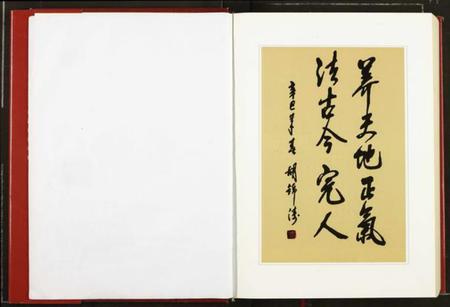 养天地正氣
法古今完人
辛巳孟春 胡锦涛